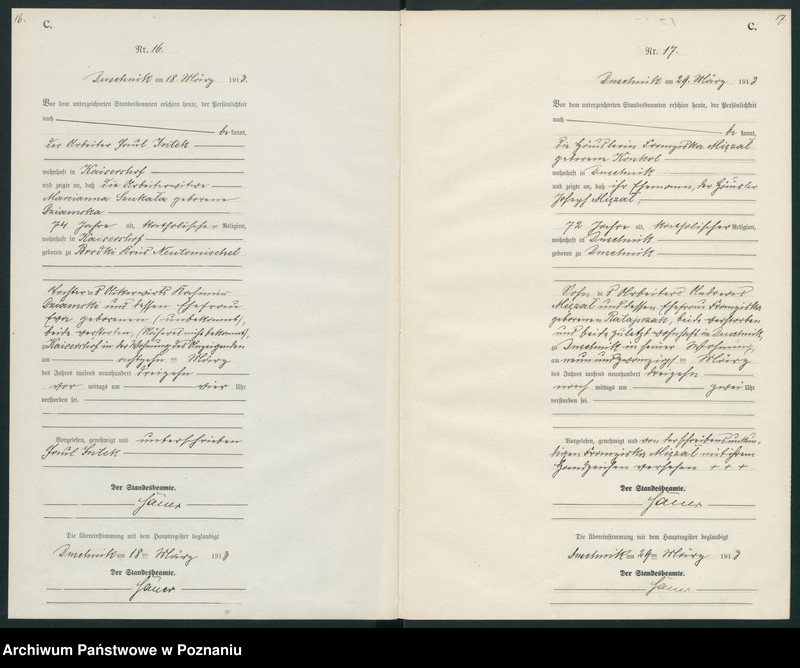 16.
C.
Nr. 16.
Duschnik am 18. März 1913.
Vor dem unterzeichneten Standesbeamten erschien heute, der Persönlichkeit
nach
be kannt,
der Arbeiter Paul Intek
wohnhaft in Kaisershof
und zeigte an, daß die Arbeiterwitwe
Marcianna Szukala geborene
Dziamska
74 Jahre alt, katholischer Religion,
wohnhaft in Kaisershof
geboren zu Brodki Kreis Neutomischel
Tochter des Ackerwirts
Dziamski und dessen Ehefrau
Eva geborenen (unbekannt),
beide verstorben, (Näheres nicht bekannt),
Kaisershof in der Wohnung des Anzeigenden
am achtzehn ten März
des Jahres tausend neunhundert dreizehn
vor mittags um vier Uhr
verstorben sei.
Vorgelesen, genehmigt und unterschrieben
Paul Intek
Der Standesbeamte.
Die Übereinstimmung mit dem Hauptregister beglaubigt
Duschnik am 18ten März 1913
Der Standesbeamte.
17
C.
Nr. 17.
Duschnik am 29. März 1913
Vor dem unterzeichneten Standesbeamten erschien heute, der Persönlichkeit
nach
be kannt,
die Häuslerin Franziska Miczal
geborene Konkol
wohnhaft in Duschnik
und zeigte an, daß ihr Ehemann, der Häusler
Joseph Miczal,
72 Jahre alt, katholischer Religion,
wohnhaft in Duschnik
geboren zu Duschnik
Sohn des Arbeiters Andreas
Miczal und dessen Ehefrau Franziska
geborenen Ratajczak, beide verstorben
und beide zuletzt wohnhaft in Duschnik,
zu Duschnik in seiner Wohnung
am neunundzwanzigsten März
des Jahres tausend neunhundert dreizehn
nach mittags um zwei Uhr
verstorben sei.
Vorgelesen, genehmigt und von der schreibensunkun-
digen Franziska Miczal mit ihrem
Handzeichen versehen + + +
Der Standesbeamte.
Die Übereinstimmung mit dem Hauptregister beglaubigt
Duschnik am 29ten März 1913
Der Standesbeamte.
Archiwum Państwowe w Poznaniu